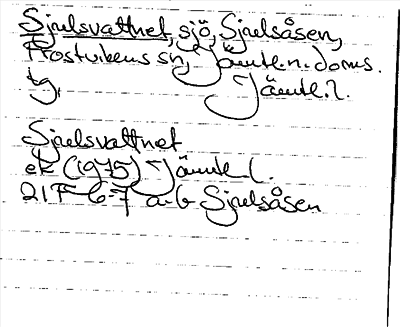 Sjulsvattnet, sjö, Sjulsåsen,
Frostvikens sn, Jämtl. n. doms.
tg, Jämtl. l.
Sjulsvattnet
ek (1975) Jämtl l.
21F 6-7 a-b Sjulsåsen